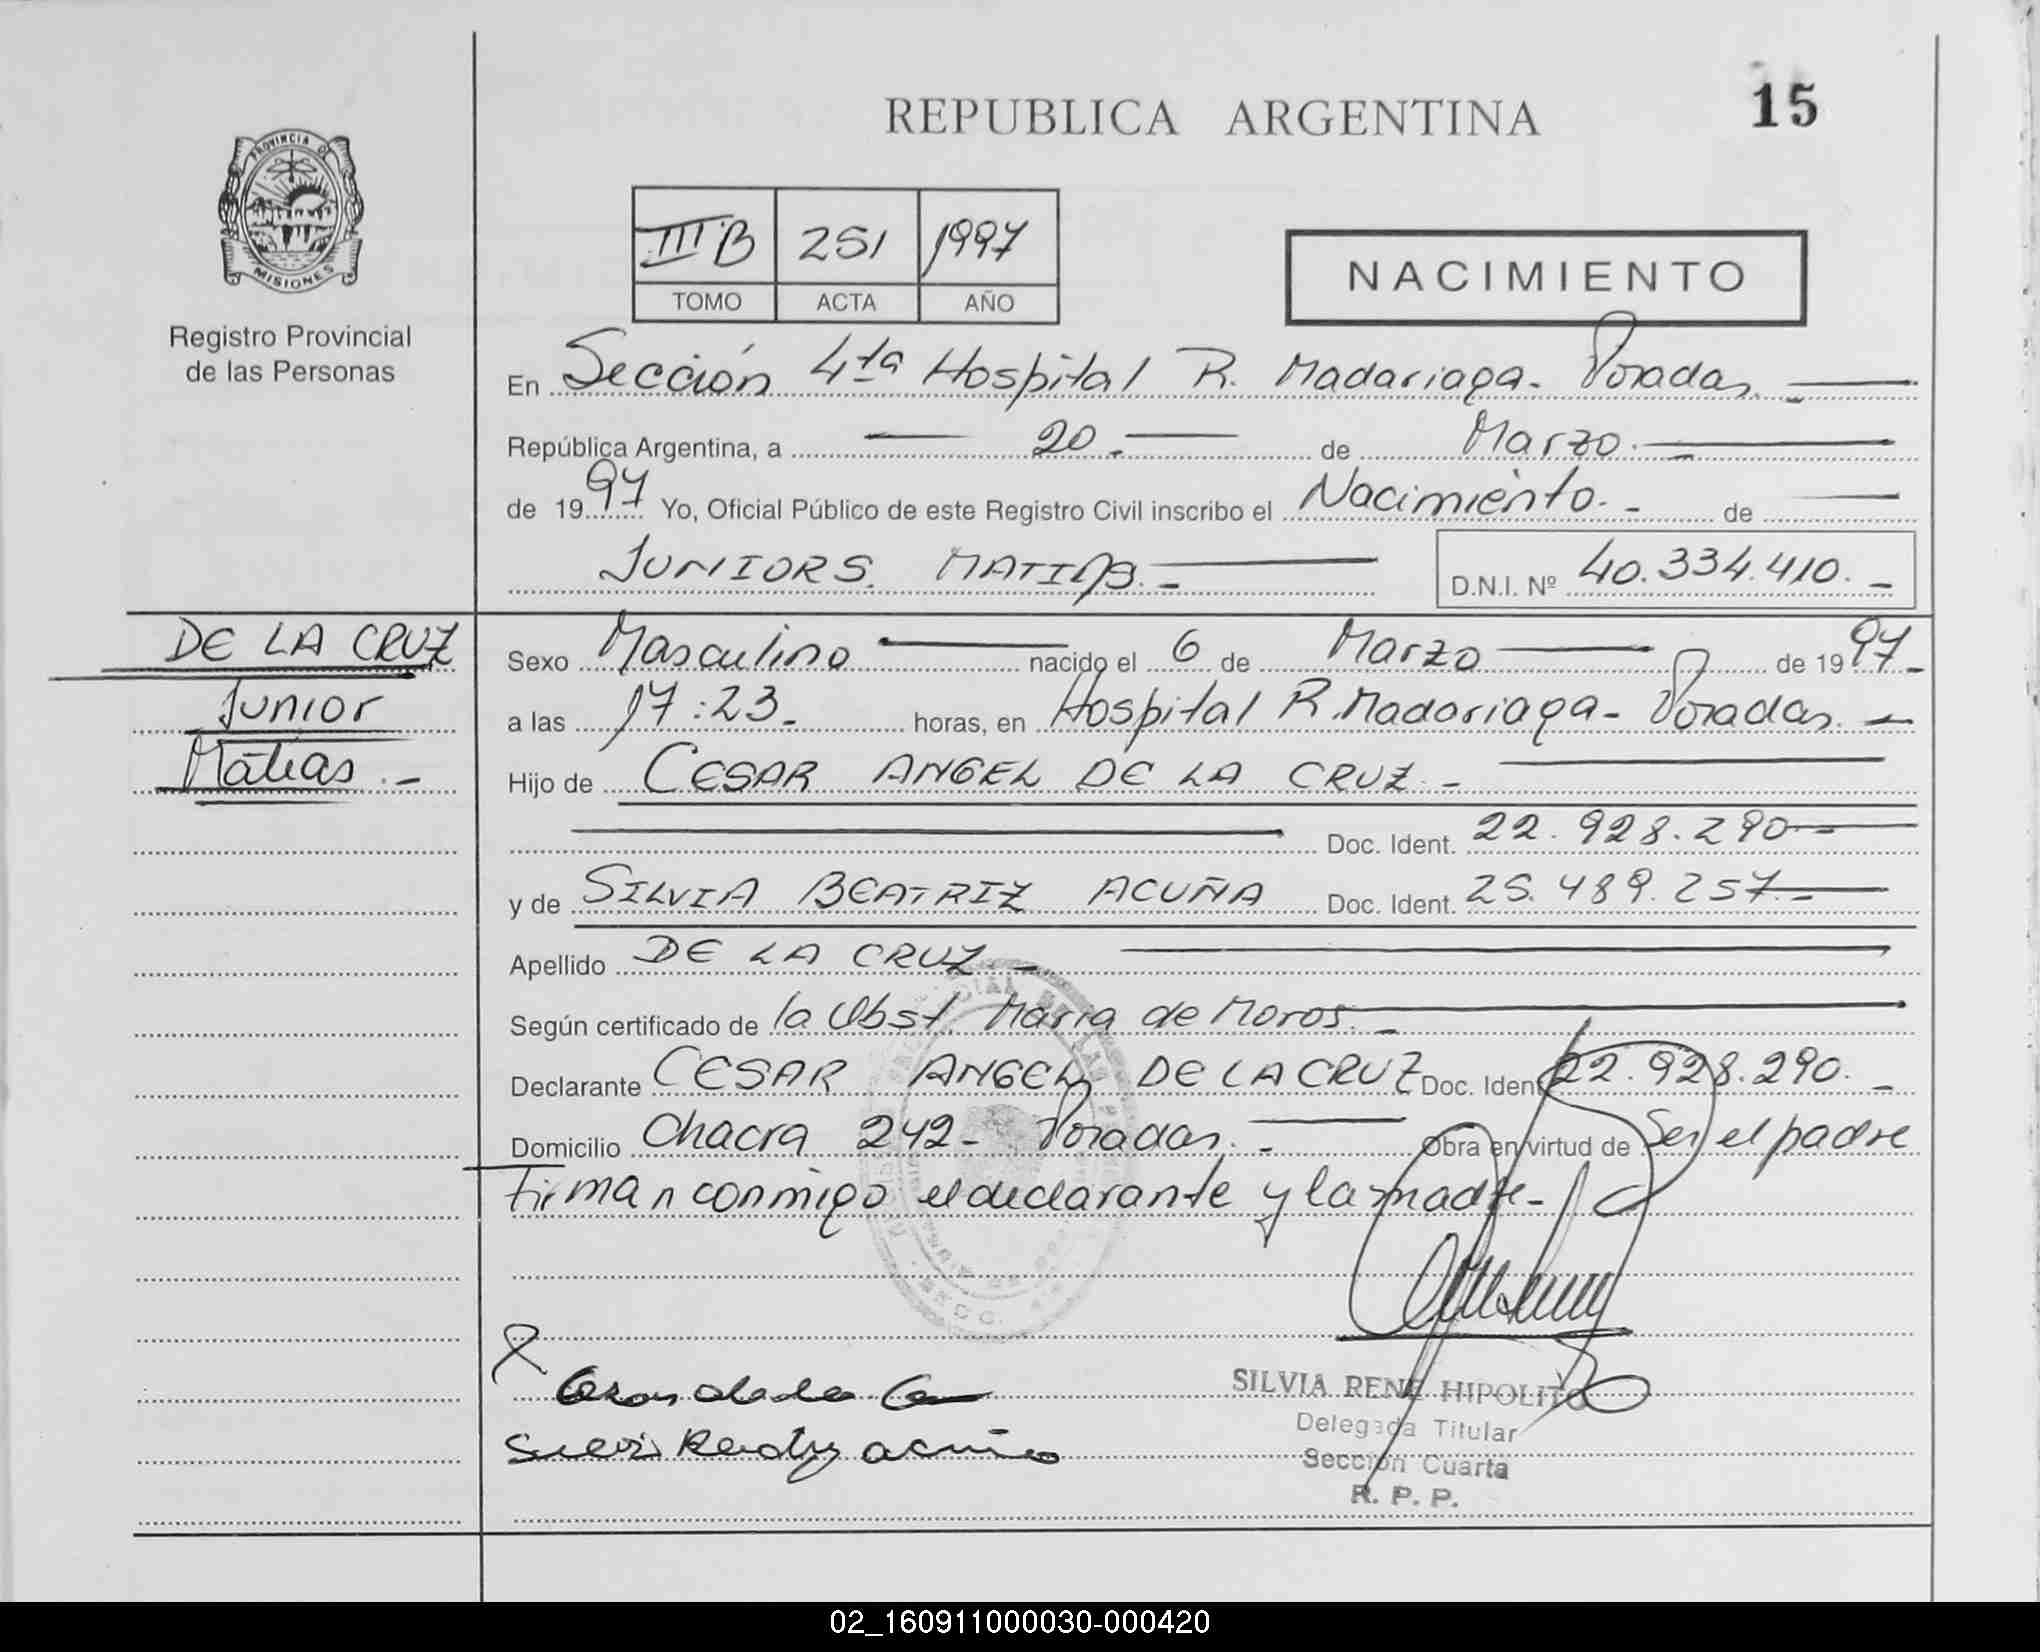 REPUBLICA ARGENTINA
15
PROVINCIA DE
MISIONES
Registro Provincial
de las Personas
III B 251 1997
TOMO ACTA AÑO
NACIMIENTO
En Sección 4ta Hospital R. Madariaga - Posadas. -
República Argentina, a 20. - de Marzo. -
de 1997 Yo, Oficial Público de este Registro Civil inscribo el Nacimiento. - de
JUNIORS. MATIAS. -
D.N.I. Nº 40.334.410. -
DE LA CRUZ
Junior
Matias. -
Sexo Masculino nacido el 6 de Marzo de 1997. -
a las 17:23. - horas, en Hospital R. Madariaga - Posadas. -
Hijo de CESAR ANGEL DE LA CRUZ. -
Doc. Ident. 22.928.290. -
y de SILVIA BEATRIZ ACUÑA Doc. Ident. 25.489.257. -
Apellido DE LA CRUZ. -
Según certificado de la Obst. Maria de Moros. -
Declarante CESAR ANGEL DE LA CRUZ Doc. Ident 22.928.290. -
Domicilio Chacra 242 - Posadas. - Obra en virtud de Ser el padre
firman conmigo el declarante y la madre -
SILVIA RENE HIPOLITO
Delegada Titular
Sección Cuarta
R. P. P.
02_160911000030-000420